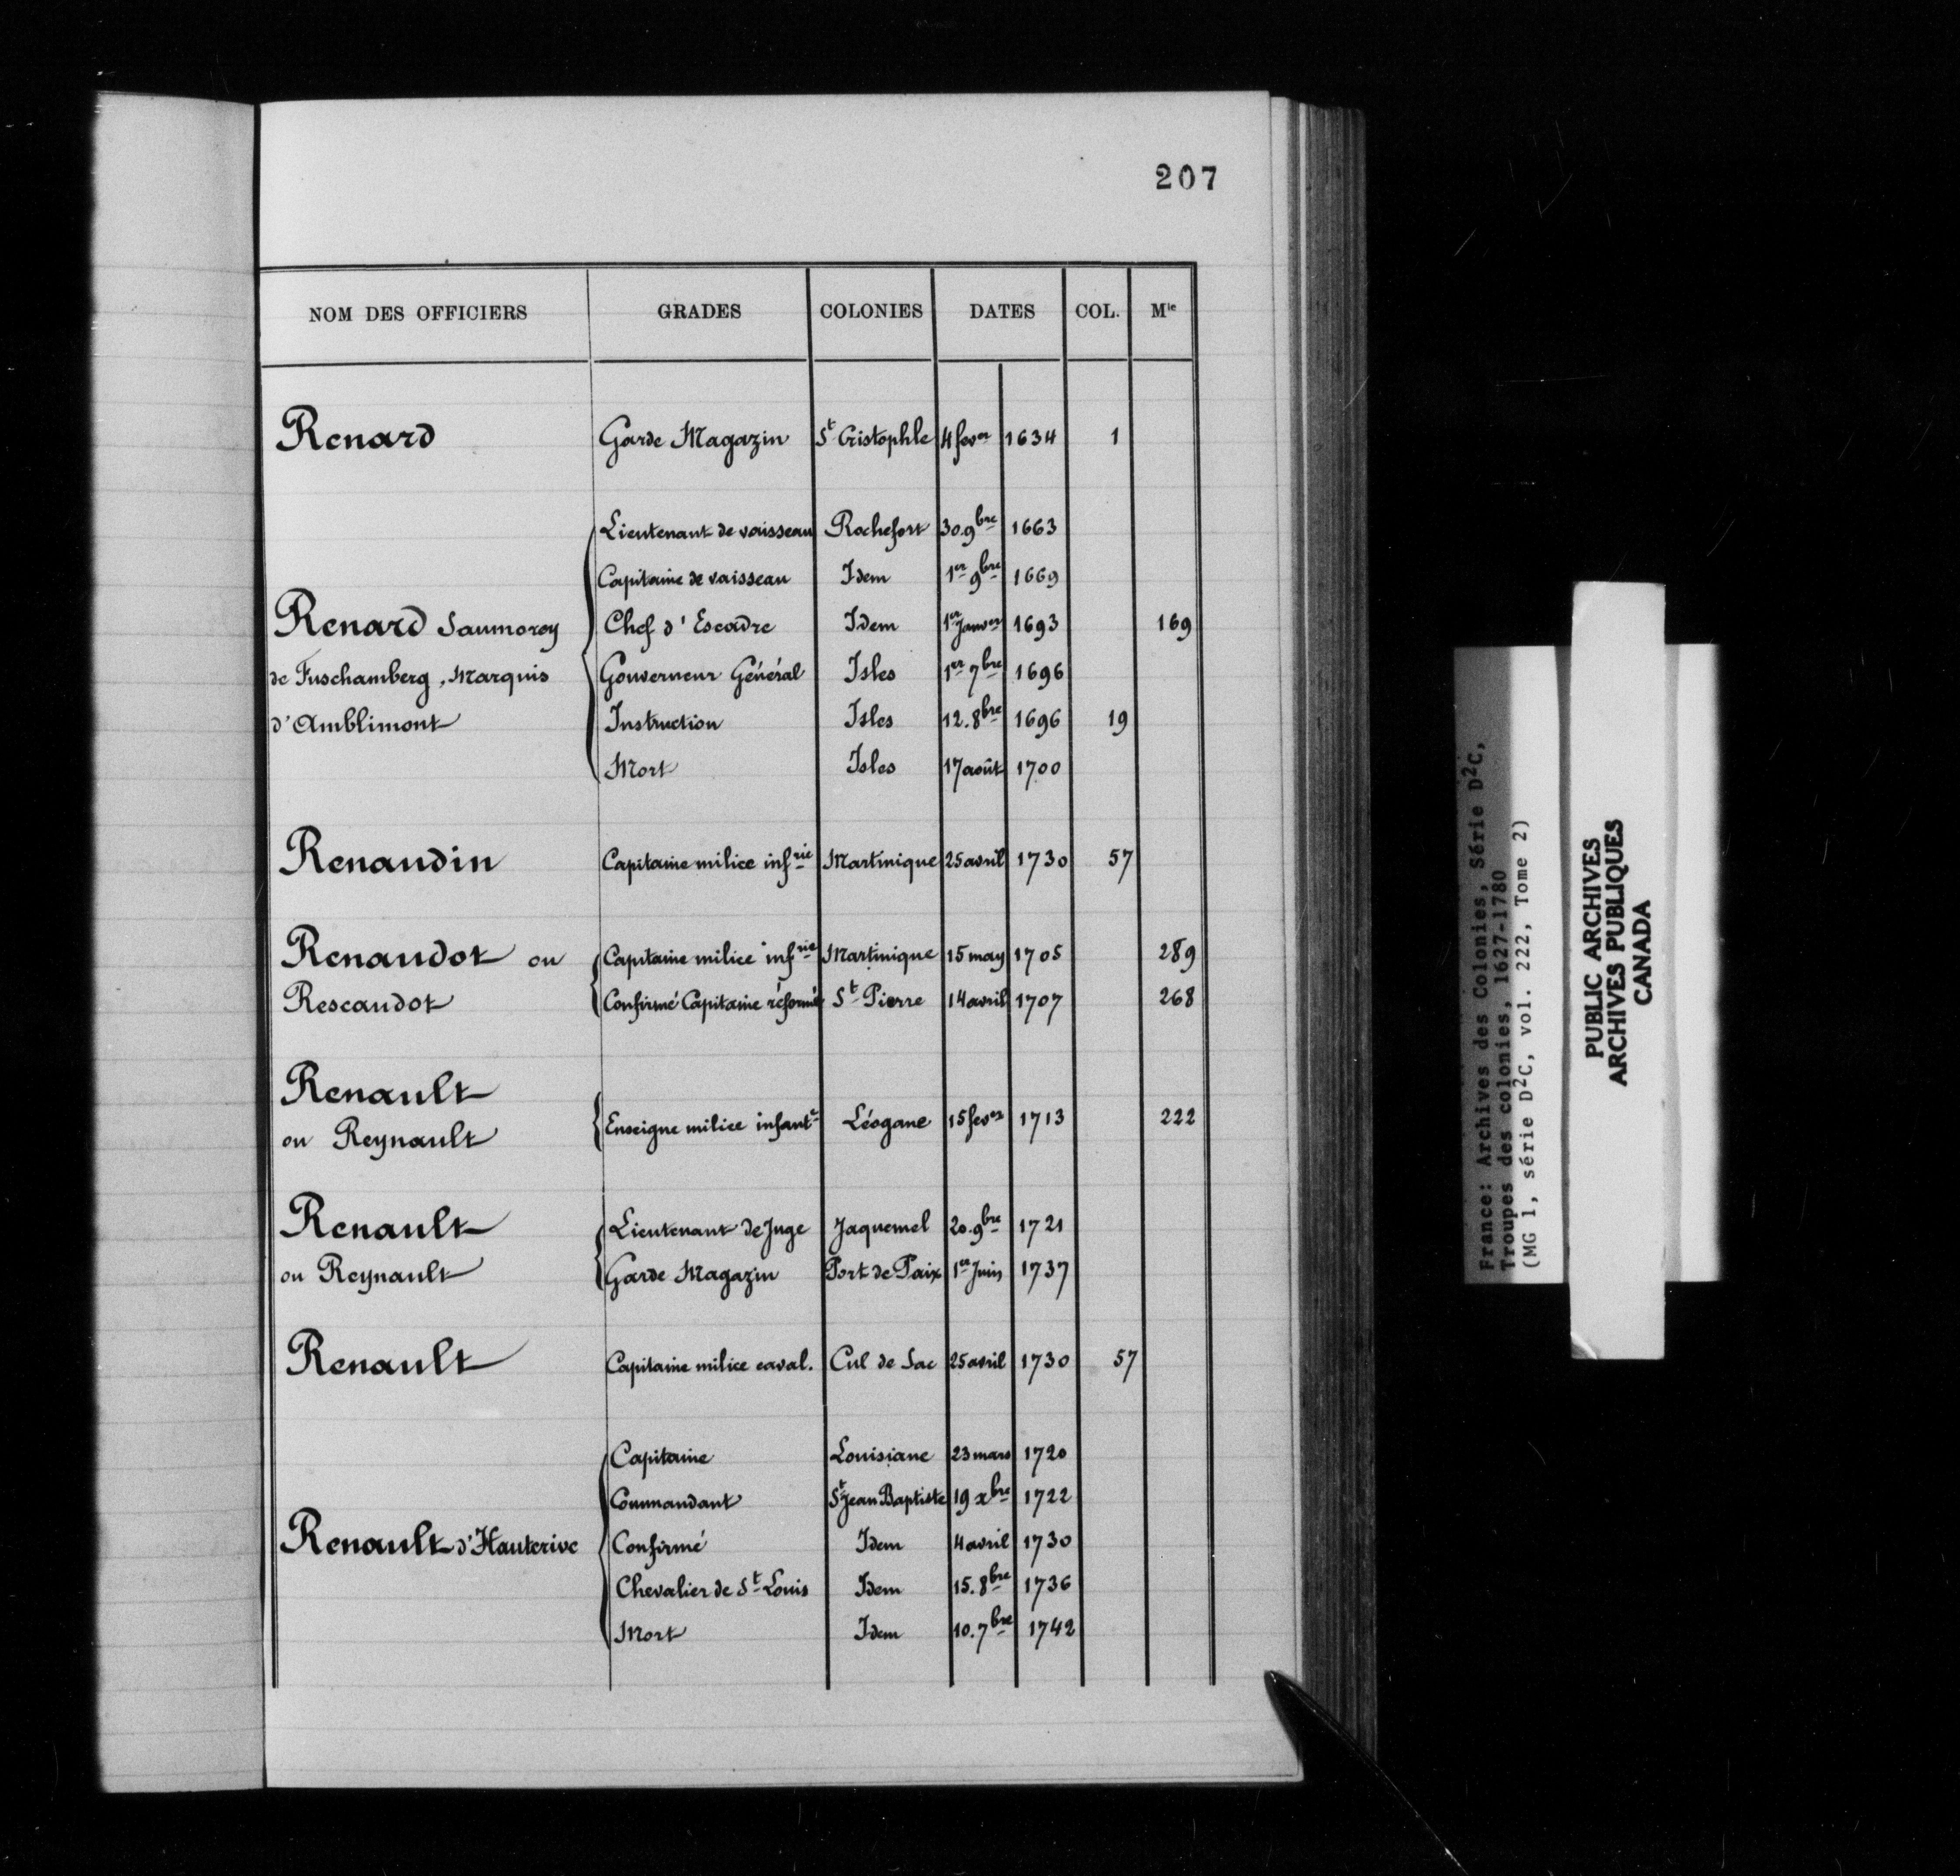 207
NOM DES OFFICIERS GRADES COLONIES DATES COL. Mie
Renard Garde Magazin St Cristophle 4 fever 1634 1
Lieutenant de vaisseau Rochefort 30.9bre 1663
Capitaine de vaisseau Idem 1er 9bre 1669
Renard Saumorey Chef d'Escadre Idem 1er Janver 1693 169
de Fuschamberg, Marquis Gouverneur Général Isles 1er 7bre 1696
d'Amblimont Instruction Isles 12.8bre 1696 19
Mort Isles 17 août 1700
Renaudin Capitaine milice infrie Martinique 25 avril 1730 57
Renaudot ou Capitaine milice infrie Martinique 15 may 1705 289
Rescaudot Confirmé Capitaine réformé St Pierre 14 avril 1707 268
Renault
ou Reynault Enseigne milice infante Léogane 15 fever 1713 222
Renault Lieutenant de Juge Jaquemel 20.9bre 1721
ou Reynault Garde Magazin Port de Paix 1er Juin 1737
Renault Capitaine milice caval. Cul de Sac 25 avril 1730 57
Capitaine Louisiane 23 mars 1720
Commandant St Jean Baptiste 19 xbre 1722
Renault d'Hauterive Confirmé Idem 4 avril 1730
Chevalier de St Louis Idem 15.8bre 1736
Mort Idem 10.7bre 1742
France: Archives des Colonies, Série D2C,
Troupes des colonies, 1627-1780
(MG 1, série D2C, vol. 222, Tome 2)
PUBLIC ARCHIVES
ARCHIVES PUBLIQUES
CANADA